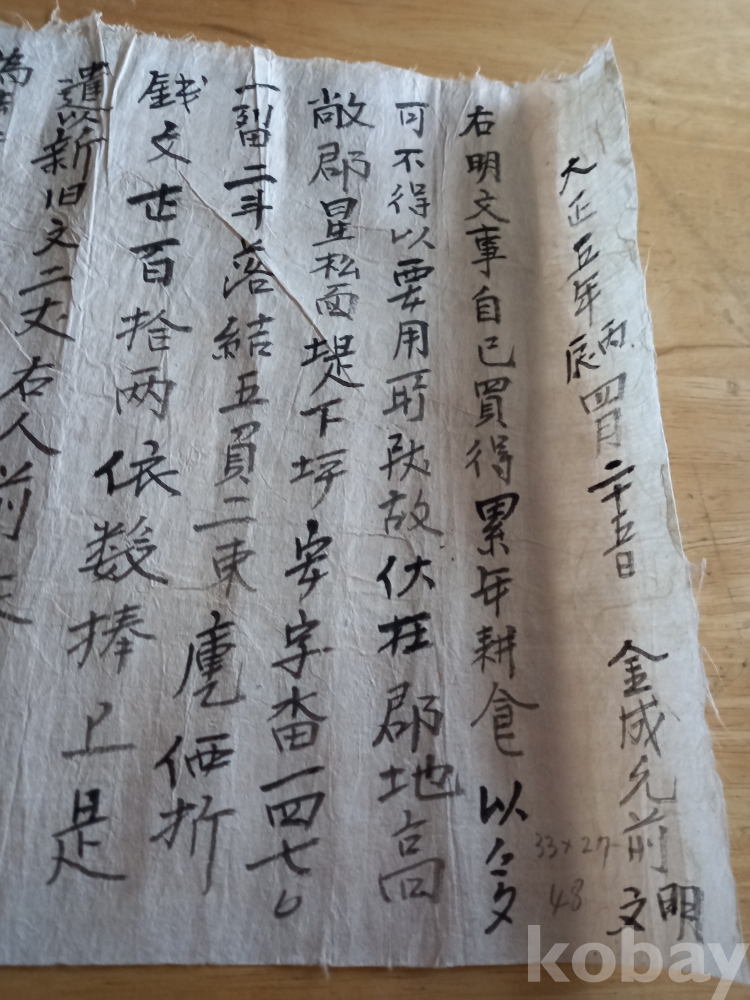 大正五年丙辰四月二十五日 金成允前 明文
右明文事自己買得累年耕食以多
可不得以要用所致故伏在郡地高
敞郡星松面堤下坪安字畓一四七
一畓二斗落結五負二束庫乙価折
銭文百拾両依数捧上是
遣以新旧文二丈右人前
為
33×27
48
kobay